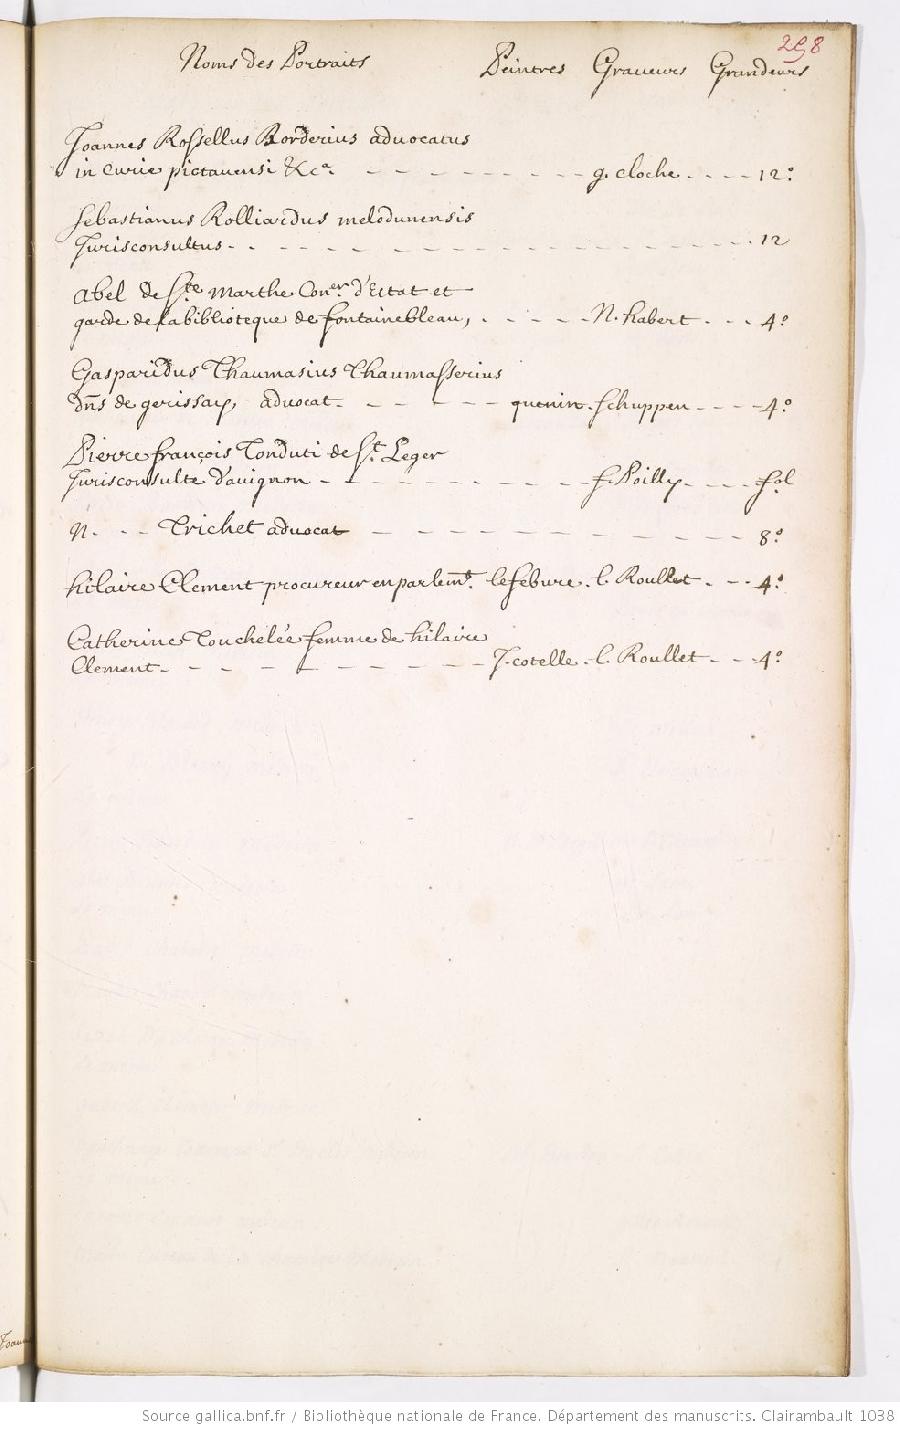 298
Noms des Portraits Peintres Graveurs Grandeurs
Joannes Rossellus Borderius advocatus
in curie pictavensi &c.a - - - - - - - - g. cloche - - - 12.o
Sebastianus Rolliardus melodunensis
Jurisconsultus - - - - - - - - - - - - 12
Abel de Ste marthe Con.er d'Estat et
garde de la biblioteque de fontainebleau, - - - - N. habert - - - 4.o
Gasparidus Thaumasius Thaumasserius
dns de gerissay, advocat - - - - - - schuppen - - - 4.o
Pierre françois Tonduti de St. Leger
Jurisconsulte d'avignon - - - - - - - f. Poilly - - - fol
N. - - Trichet advocat - - - - - - - - - 8.o
hilaire Clement procureur en parlemt. lefebure - l. Roullet - - 4.o
Catherine Touchelée femme de hilaire
Clement - - - - - - - - J. cotelle - l. Roullet - - 4.o
Source gallica.bnf.fr / Bibliothèque nationale de France. Département des manuscrits. Clairambault 1038